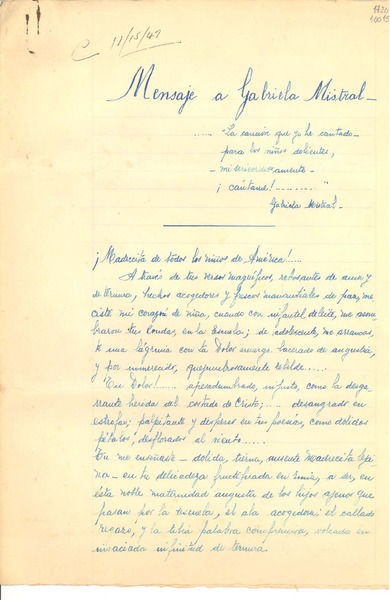 C 11/15/47
Mensaje a Gabriela Mistral -
..... "La canción que yo he cantado -
para los niños dolientes,
- misericordiosamente -
¡ cántame! ........."
Gabriela Mistral -
¡Madrecita de todos los niños de América!....
A través de tus versos magníficos, rebosantes de amor y
de ternura, hechos acogedores y frescos manantiales de paz, me-
ciste mi corazón de niña, cuando con infantil deleite, me asom-
braron tus rondas, en la Escuela; de adolescente, me arrancas-
te una lágrima con tu Dolor amargo, lacerado de angustia,
y por inmerecido, quejumbrosamente rebelde....
¡Tu Dolor! ..... apesadumbrado, infinito, como la desga-
rrante herida del costado de Cristo; ..... desangrado en
estrofas; palpitante y disperso en tus poemas, como doloridos
pétalos, desflorados al viento....
Tu me enseñaste - dolida, tierna, ausente Madrecita
- en tu delicadeza fructificada en a ser, en
ésta noble maternidad augusta de los hijos ajenos que
pasan por la escuela, el ala acogedora: el callado
regazo, y la tibia palabra comprensiva, volcada en
insaciada infinitud de ternura.